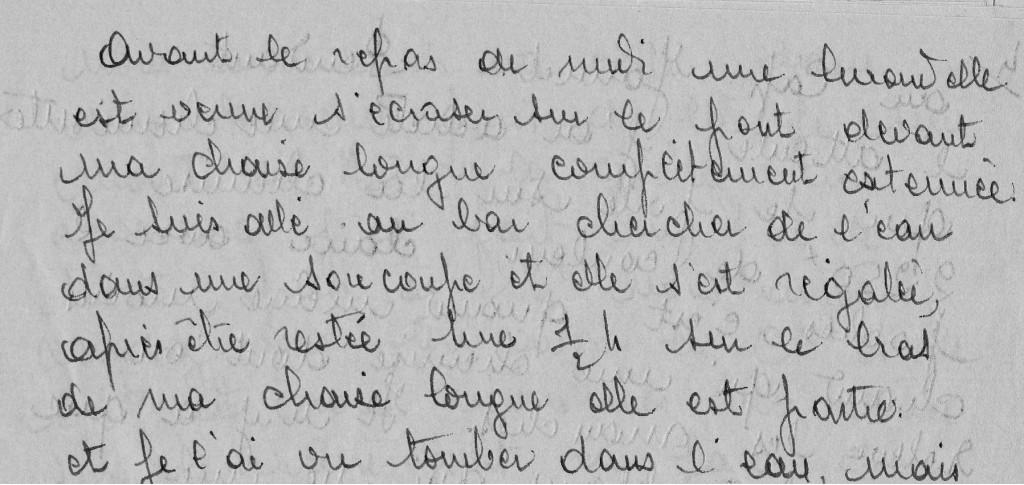 Avant le repas de midi une hirondelle
est venue s'écraser sur le pont devant
ma chaise longue complètement extenuée.
Je suis allé au bar chercher de l'eau
dans une soucoupe et elle s'est régalée,
après être restée une 1/2 h sur le bras
de ma chaise longue elle est partie.
et je l'ai vu tomber dans l'eau, mais